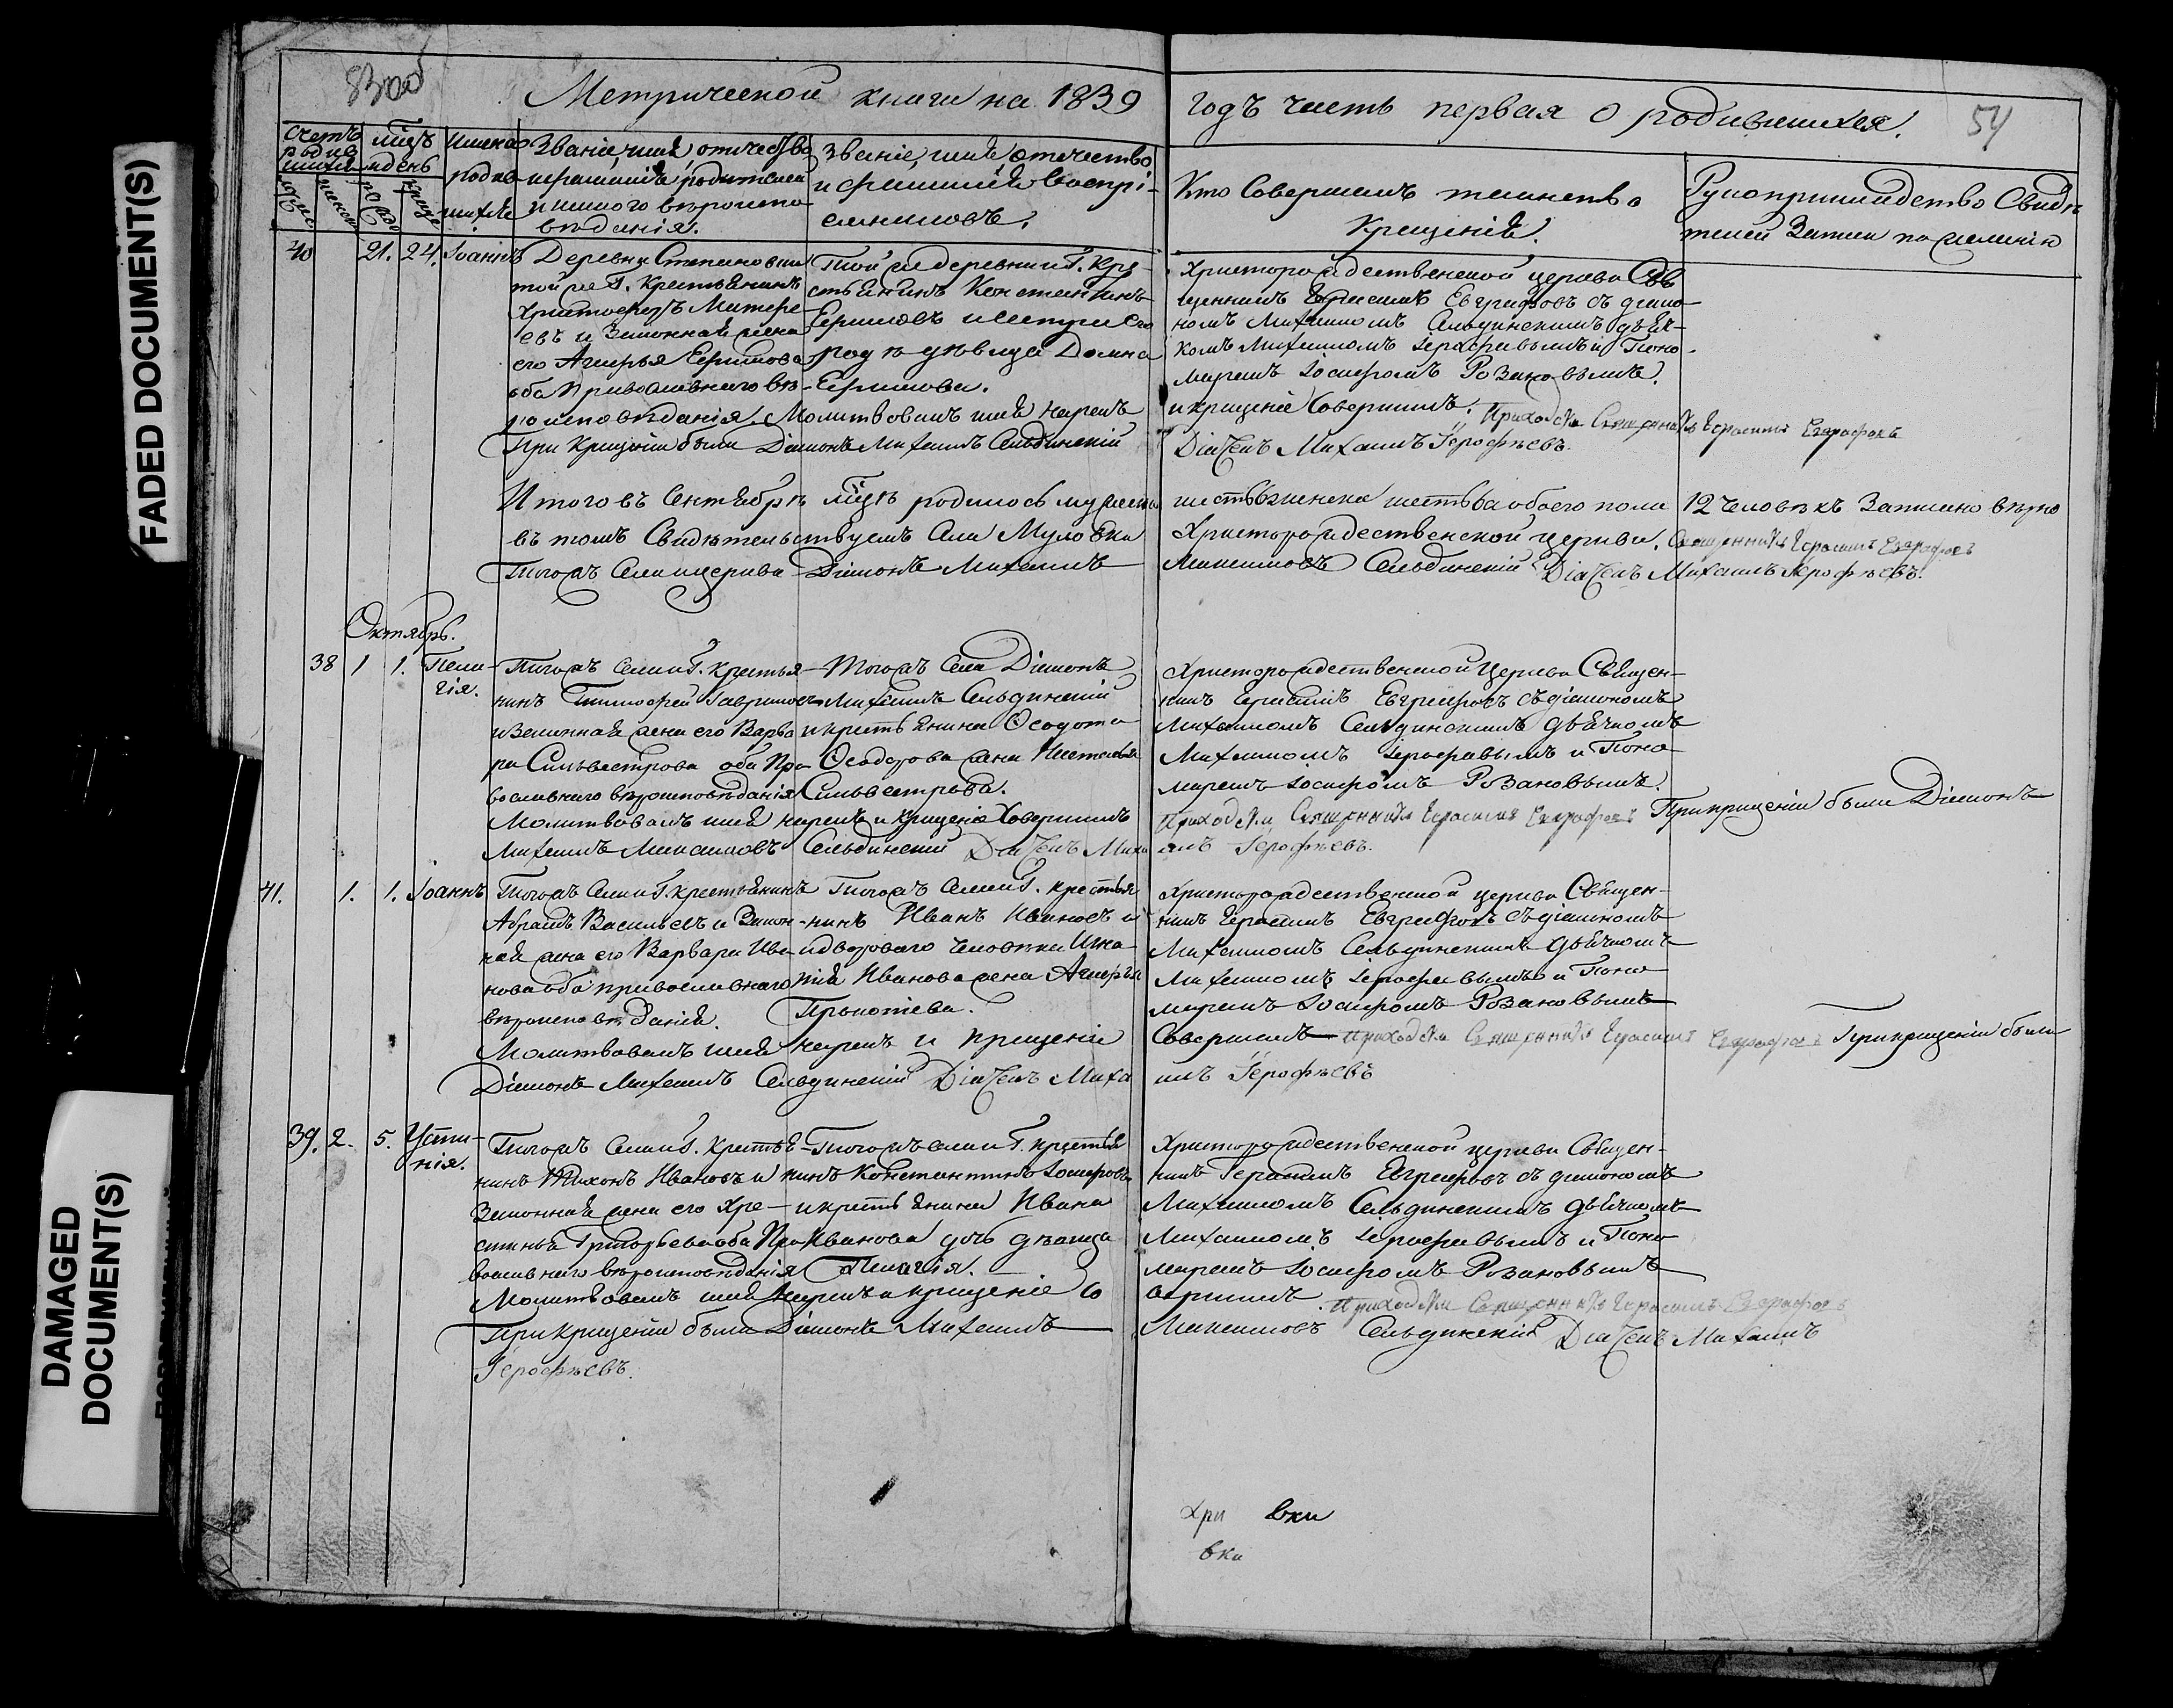 FADED DOCUMENT(S)
DAMAGED
DOCUMENT(S)
54
Метрической книги на 1839 Годъ часть первая о родившихся.
Счетъ родив
мцъ и день
Имена родив
шихся
Званіе, имя, отчество
и фамилія родителей
и какого вѣроиспо
вѣданія.
Званіе, имя, отчество
и фамилія воспрі-
емниковъ.
Кто Совершалъ таинство
Крещенія.
Рукоприкладство Свидѣ
телей Записи по желанію
40 21. 24. Іоаннъ
Деревни Степановки
той же Г. Крестьянинъ
Христофоръ
евъ и Законная жена
его Ефимова
оба Православнаго вѣ-
роисповѣданія. Молитвовалъ имя нарекъ
При Крещеніи были Діаконъ Михаилъ Сельдинскій
Той же деревни Г. Кре-
стьянинъ Константинъ
девица Домна
Ефимова.
Христорождественской церкви Свя
щенникъ Герасимъ Евграфовъ съ діако-
номъ Михаиломъ Сельдинскимъ дьяч-
комъ Михаиломъ Іерофѣевымъ и Поно-
маремъ Іосифомъ Розановымъ.
и крещеніе Совершилъ. Приходски Священникъ Герасимъ Евграфовъ
Дiaчекъ Михаилъ Герофѣевъ.
Итого въ Сентябрѣ мцѣ родилось мужеска шесть женска шесть обоего пола 12 человѣкъ Записано вѣрно
въ томъ Свидѣтельствуемъ Села Муловки Христорождественской церкви. Священникъ Герасимъ Евграфовъ
Тогожъ Села церкви Діаконъ Михаилъ Максимовъ Сельдинскій Діачекъ Михаилъ Герофѣевъ.
Октябрь.
38 1 1. Пела-
гія.
Тогожъ Села Г. Крестья-
нинъ Тимофей Гавриловъ
и Законная жена его Варва
ра Сильвестрова оба Пра
вославнаго вѣроисповѣданія
Молитвовалъ имя нарекъ и крещеніе Совершилъ
Михаилъ Максимовъ Сельдинскій Діачекъ Миха
Тогожъ Села Діаконъ
Михаилъ Сельдинскій
и крестьянина Ѳедота
Ѳедорова жена Наталья
Сильвестрова.
Христорождественской Церкви Священ-
никъ Герасимъ Евграфовъ съ діакономъ
Михаиломъ Сельдинскимъ дьячкомъ
Михаиломъ Іерофѣевымъ и Поно-
маремъ Іосифомъ Розановымъ.
Приходски Священникъ Герасимъ Евграфовъ При крещеніи были Діаконъ
илъ Герофѣевъ.
41. 1. 1. Іоаннъ
Тогожъ Села Г. крестьянинъ
Абрамъ Васильевъ и Закон-
ная жена его Варвара Ива-
нова оба православнаго
вѣроисповѣданія.
Молитвовалъ имя нарекъ и крещеніе
Діаконъ Михаилъ Сельдинскій Діачекъ Миха
Тогожъ Села Г. крестья
нинъ Иванъ Ивановъ и
дворового человѣка Игна-
тія Иванова жена
Христорождественской церкви Священ-
никъ Герасимъ Евграфовъ съ діакономъ
Михаиломъ Сельдинскимъ дьячкомъ
Михаиломъ Іерофѣевымъ и Поно-
маремъ Іосифомъ Розановымъ
Совершилъ Приходски Священникъ Герасимъ Евграфовъ При крещеніи были
илъ Герофѣевъ
39. 2. 5. Усти-
нія.
Тогожъ Села Г. Крестья-
нинъ Тихонъ Ивановъ и
Законная жена его Хре-
стинья Григорьева оба Пра
вославнаго вѣроисповѣданія
Молитвовалъ имя нарекъ и крещеніе Со
При Крещеніи были Діаконъ Михаилъ
Герофѣевъ.
Тогожъ села Г. крестья
нинъ Константинъ Іосифовъ
и крестьянина Ивана
Иванова дочь дѣвица
Пелагія.
Христорождественской церкви Священ-
никъ Герасимъ Евграфовъ съ діакономъ
Михаиломъ Сельдинскимъ дьячкомъ
Михаиломъ Іерофѣевымъ и Поно-
маремъ Іосифомъ Розановымъ
вершилъ. Приходски Священникъ Герасимъ Евграфовъ
Максимовъ Сельдинскій Діачекъ Михаилъ
Хри вки
вки